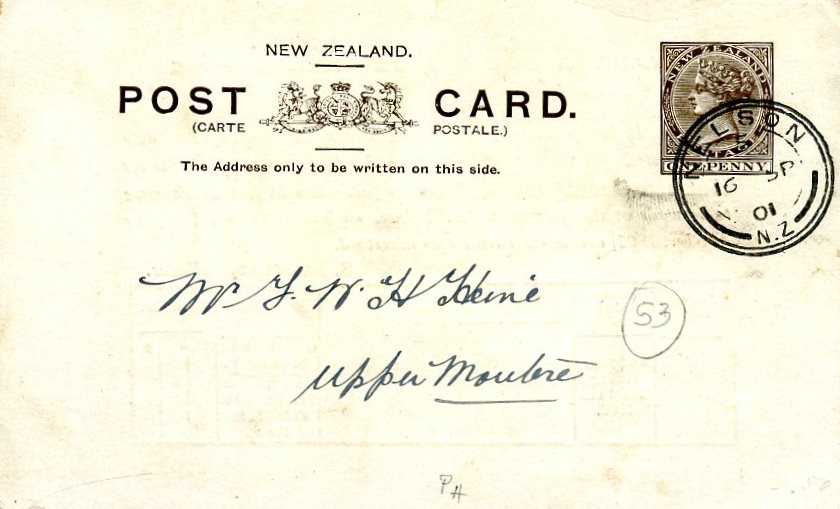 NEW ZEALAND.
POST CARD.
(CARTE POSTALE.)
The Address only to be written on this side.
NEW ZEALAND
POSTAGE
ONE PENNY
NELSON
16 SP
01
N.Z
Mr F. W. H Heine
53
Upper Moutere
PH
.50